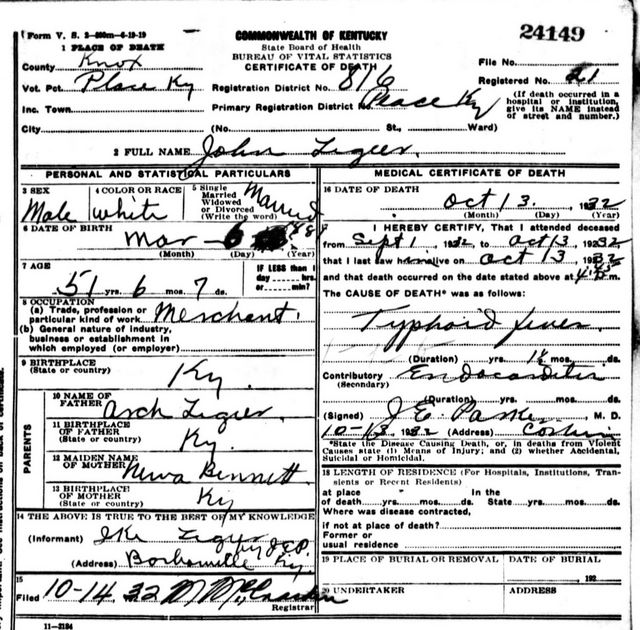 Form V. S. 2-500m-6-19-19
COMMONWEALTH OF KENTUCKY
24149
State Board of Health
BUREAU OF VITAL STATISTICS
CERTIFICATE OF DEATH
1 PLACE OF DEATH
County Knox
Vot. Pct. Place Ky
Inc. Town
City
Registration District No. 816
Primary Registration District No. Place Ky
(No. St., Ward)
File No.
Registered No. 21
(If death occurred in a hospital or institution, give its NAME instead of street and number.)
2 FULL NAME John
PERSONAL AND STATISTICAL PARTICULARS
3 SEX
Male
4 COLOR OR RACE
white
5 Single
Married
Widowed
or Divorced
(Write the word)
Married
6 DATE OF BIRTH
Mar 6
(Month) (Day) (Year)
7 AGE
51 yrs. 6 mos. 7 ds.
IF LESS than 1
day hrs.
or min?
8 OCCUPATION
(a) Trade, profession or
particular kind of work Merchant.
(b) General nature of industry,
business or establishment in
which employed (or employer)
9 BIRTHPLACE
(State or country)
Ky.
PARENTS
10 NAME OF
FATHER
Arch
11 BIRTHPLACE
OF FATHER
(State or country)
Ky
12 MAIDEN NAME
OF MOTHER
Bennett
13 BIRTHPLACE
OF MOTHER
(State or country)
Ky
14 THE ABOVE IS TRUE TO THE BEST OF MY KNOWLEDGE
(Informant) by J.E.P.
(Address) Ky
15
Filed 10-14 32
Registrar
11-3184
MEDICAL CERTIFICATE OF DEATH
16 DATE OF DEATH
Oct 13. 1932
(Month) (Day) (Year)
I HEREBY CERTIFY, That I attended deceased
from Sept 1 1932 to Oct 13, 1932
that I last saw him alive on Oct 13, 1932
and that death occurred on the date stated above at m.
The CAUSE OF DEATH* was as follows:
Typhoid fever
(Duration) yrs. mos. ds.
Contributory Endocarditis
(Secondary)
(Duration) yrs. mos. ds.
(Signed) J.E. Parker, M. D.
10-13 1932 (Address) Corbin
*State the Disease Causing Death, or, in deaths from Violent
Causes state (1) Means of Injury; and (2) whether Accidental,
Suicidal or Homicidal.
18 LENGTH OF RESIDENCE (For Hospitals, Institutions, Transients or Recent Residents)
at place In the
of death yrs. mos. ds. State yrs. mos. ds.
Where was disease contracted,
if not at place of death?
Former or
usual residence
19 PLACE OF BURIAL OR REMOVAL
DATE OF BURIAL
192
20 UNDERTAKER
ADDRESS